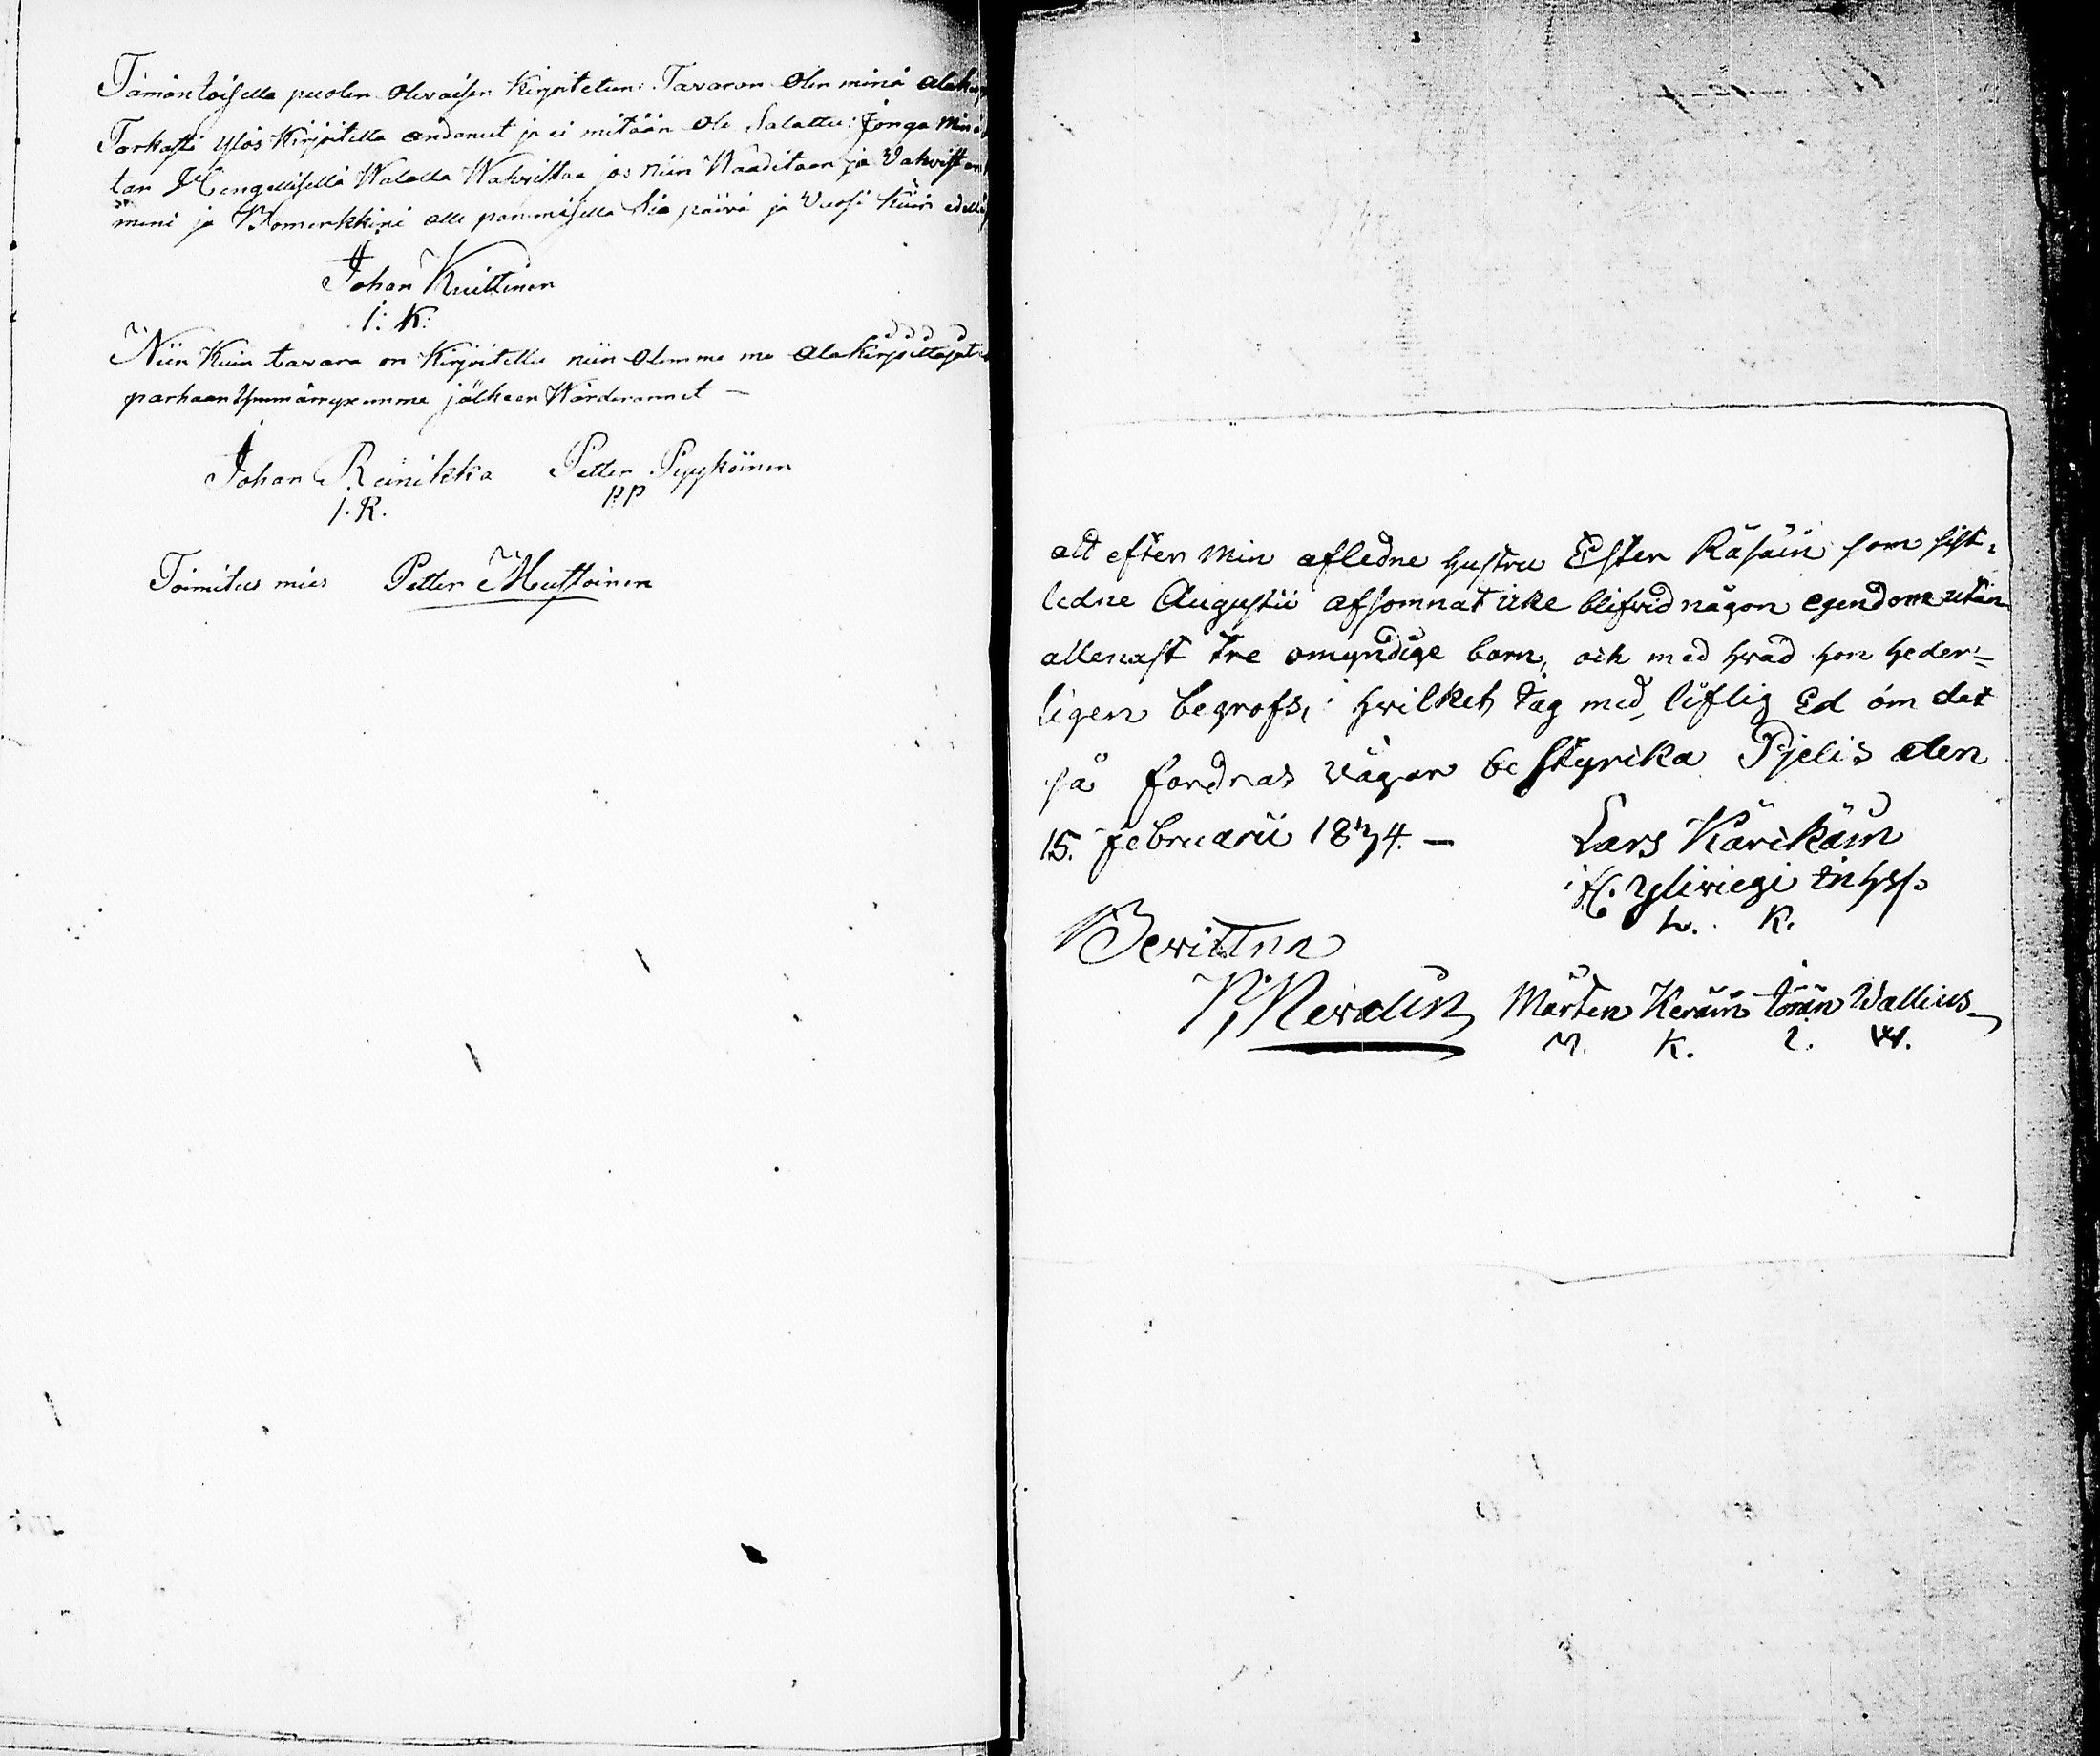 Tämän toisella puolen olevaisen Kirjoitetun: Tavaran Olen minä
Tarkasti ylös Kirjoitella andanut ja ei mitään Ole Salattu: Jonga Minä
tan Hengellisellä Walalla Wahvistaa jos niin Waaditaan ja Vahvistan
meni ja Bomerkkini alle panemisella Sia päivä ja Vuosi kuin
Johan Kuittinen
I: K:
Niin Kuin tavara on Kirjoitettu niin Olemme me Alakirjoittajat
parhaan Ymmärryxemme jälkeen Wärderannet —
Johan Reinikka Petter Pyyköinen
I. R. P.P
Toimitus mies Petter Mustoinen
att efter min afledne hustru Ester Räsäin som sist-
ledne Augustii afsomnat icke blifvid någon egendom utan
allenast tre omyndige barn, och med hvad hon heder=
ligen begrofs, hvilket Jag med liflig Ed om det
så fordras vågar bestyrka Pjelis den
15. februarii 1834. — Lars Käri­käin
L. K.
Bewittna
Mårten Keräin Jöran Wallius
M. K. I. W.